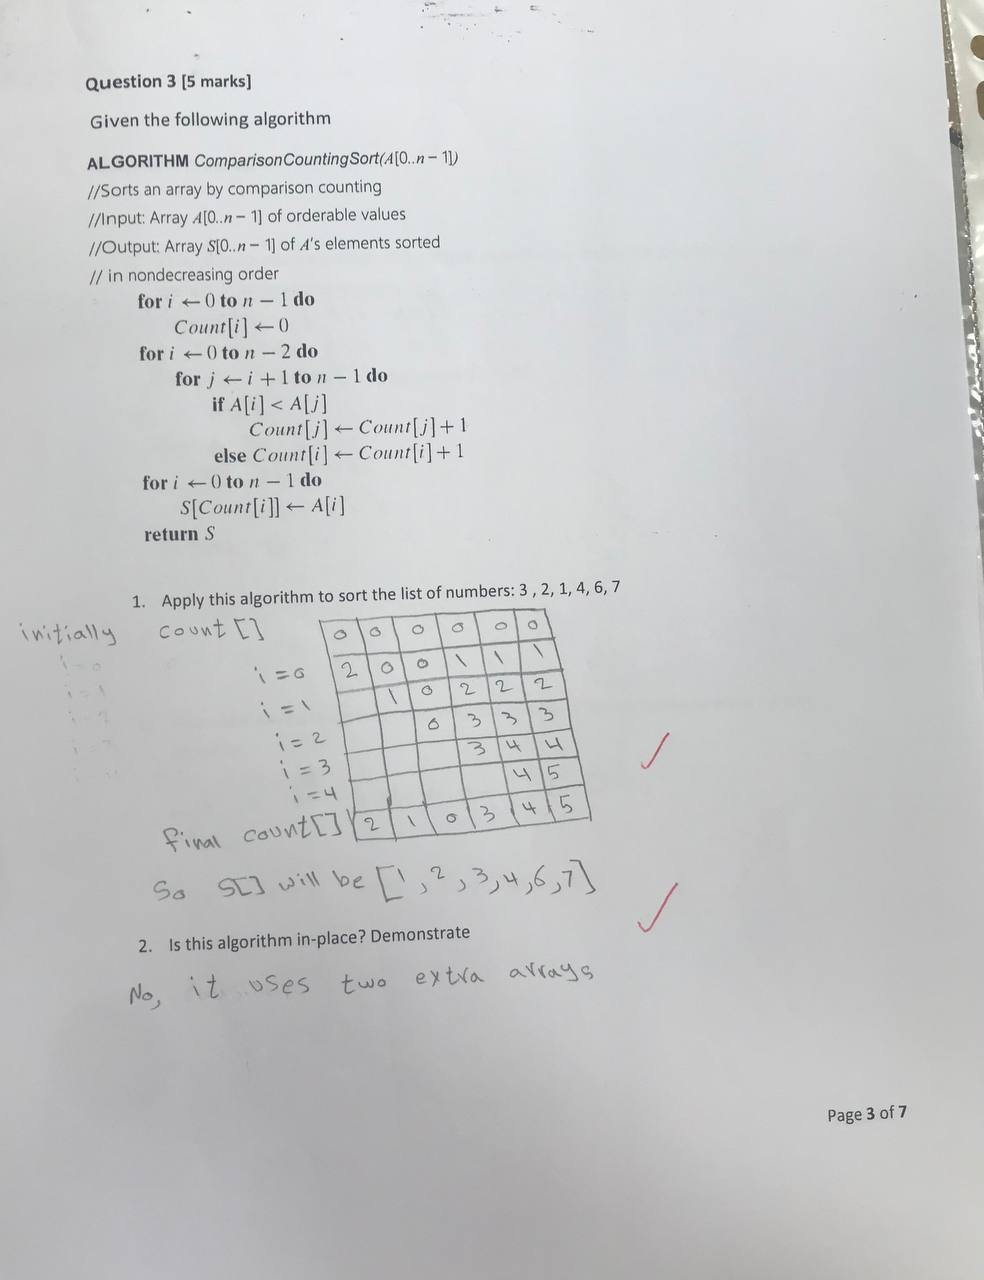 Question 3 [5 marks]
Given the following algorithm
ALGORITHM ComparisonCountingSort(A[0..n − 1])
//Sorts an array by comparison counting
//Input: Array A[0..n − 1] of orderable values
//Output: Array S[0..n − 1] of A's elements sorted
// in nondecreasing order
for i ← 0 to n − 1 do
Count[i] ← 0
for i ← 0 to n − 2 do
for j ← i + 1 to n − 1 do
if A[i] < A[j]
Count[j] ← Count[j] + 1
else Count[i] ← Count[i] + 1
for i ← 0 to n − 1 do
S[Count[i]] ← A[i]
return S
1. Apply this algorithm to sort the list of numbers: 3 , 2, 1, 4, 6, 7
initially count [] 0 0 0 0 0 0
i = 0 2 0 0 1 1 1
i = 1 1 0 2 2 2
i = 2 0 3 3 3
i = 3 3 4 4
i = 4 4 5
final count[] 2 1 0 3 4 5
So S[] will be [1, 2, 3, 4, 6, 7]
2. Is this algorithm in-place? Demonstrate
No, it uses two extra arrays
Page 3 of 7